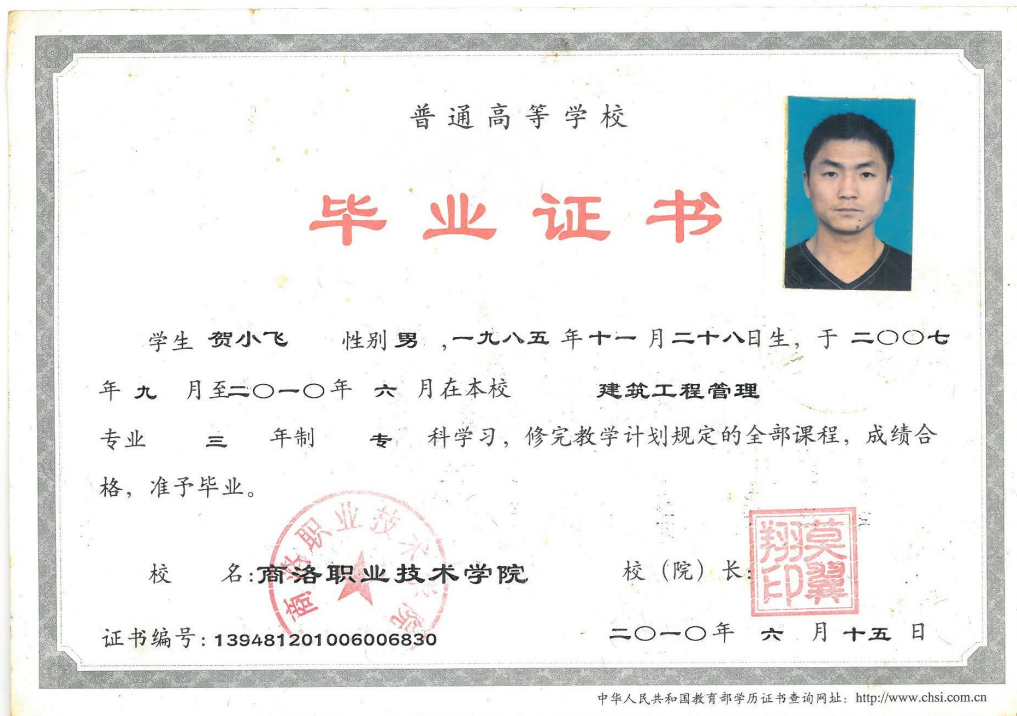 普通高等学校
毕业证书
学生 贺小飞 性别 男 ,一九八五 年 十一 月 二十八日生，于 二〇〇七
年 九 月至二〇一〇年 六 月在本校 建筑工程管理
专业 三 年制 专 科学习，修完教学计划规定的全部课程，成绩合
格，准予毕业。
商洛职业技术学院
莫翼翔印
校 名:商洛职业技术学院 校（院）长:
证书编号:139481201006006830 二〇一〇年 六 月 十五 日
中华人民共和国教育部学历证书查询网址：http://www.chsi.com.cn